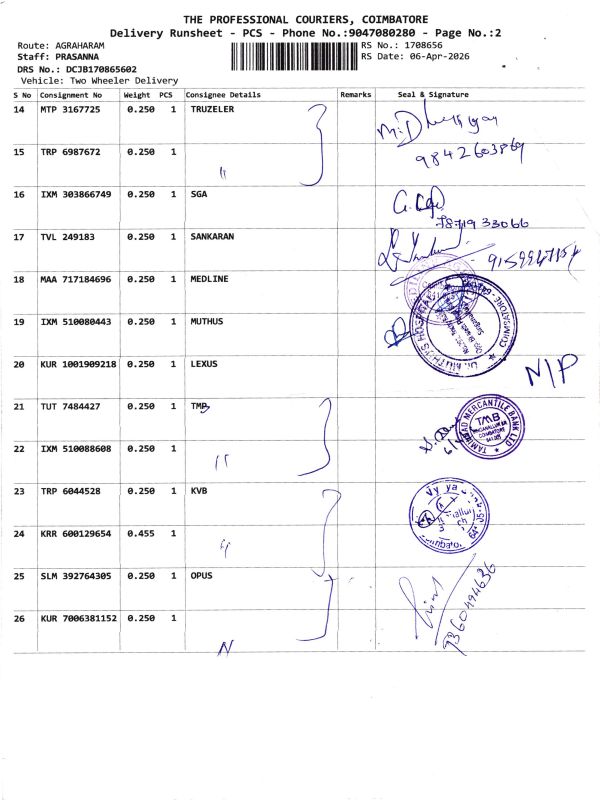 THE PROFESSIONAL COURIERS, COIMBATORE
Delivery Runsheet - PCS - Phone No.:9047080280 - Page No.:2
Route: AGRAHARAM
Staff: PRASANNA
DRS No.: DCJB170865602
Vehicle: Two Wheeler Delivery
RS No.: 1708656
RS Date: 06-Apr-2026
S No Consignment No Weight PCS Consignee Details Remarks Seal & Signature
14 MTP 3167725 0.250 1 TRUZELER
15 TRP 6987672 0.250 1 "
9842603869
16 IXM 303866749 0.250 1 SGA
7871933066
17 TVL 249183 0.250 1 SANKARAN
18 MAA 717184696 0.250 1 MEDLINE
19 IXM 510080443 0.250 1 MUTHUS
COIMBATORE
20 KUR 1001909218 0.250 1 LEXUS N/P
21 TUT 7484427 0.250 1 TMB
TAMILNAD MERCANTILE BANK LTD
TMB
COIMBATORE
22 IXM 510088608 0.250 1 "
23 TRP 6044528 0.250 1 KVB
24 KRR 600129654 0.455 1 "
25 SLM 392764305 0.250 1 OPUS
9360494636
26 KUR 7006381152 0.250 1 "